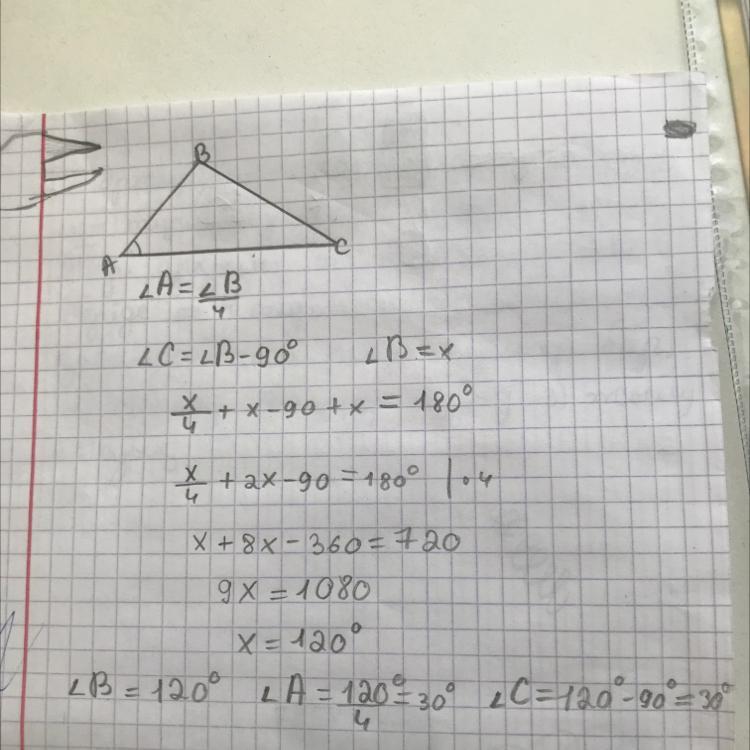 B
A C
∠A = ∠B/4
∠C = ∠B - 90° ∠B = x
x/4 + x - 90 + x = 180°
x/4 + 2x - 90 = 180° | • 4
x + 8x - 360 = 720
9x = 1080
x = 120°
∠B = 120° ∠A = 120°/4 = 30° ∠C = 120° - 90° = 30°